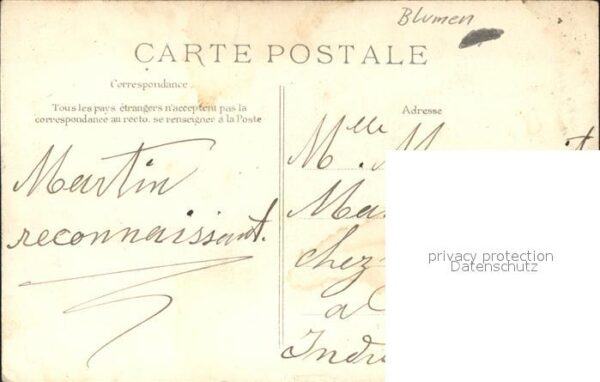 Blumen
CARTE POSTALE
Correspondance
Tous les pays étrangers n'acceptent pas la
correspondance au recto. se renseigner à la Poste
Adresse
Martin
reconnaissant.
Mlle
chez
a
privacy protection
Datenschutz